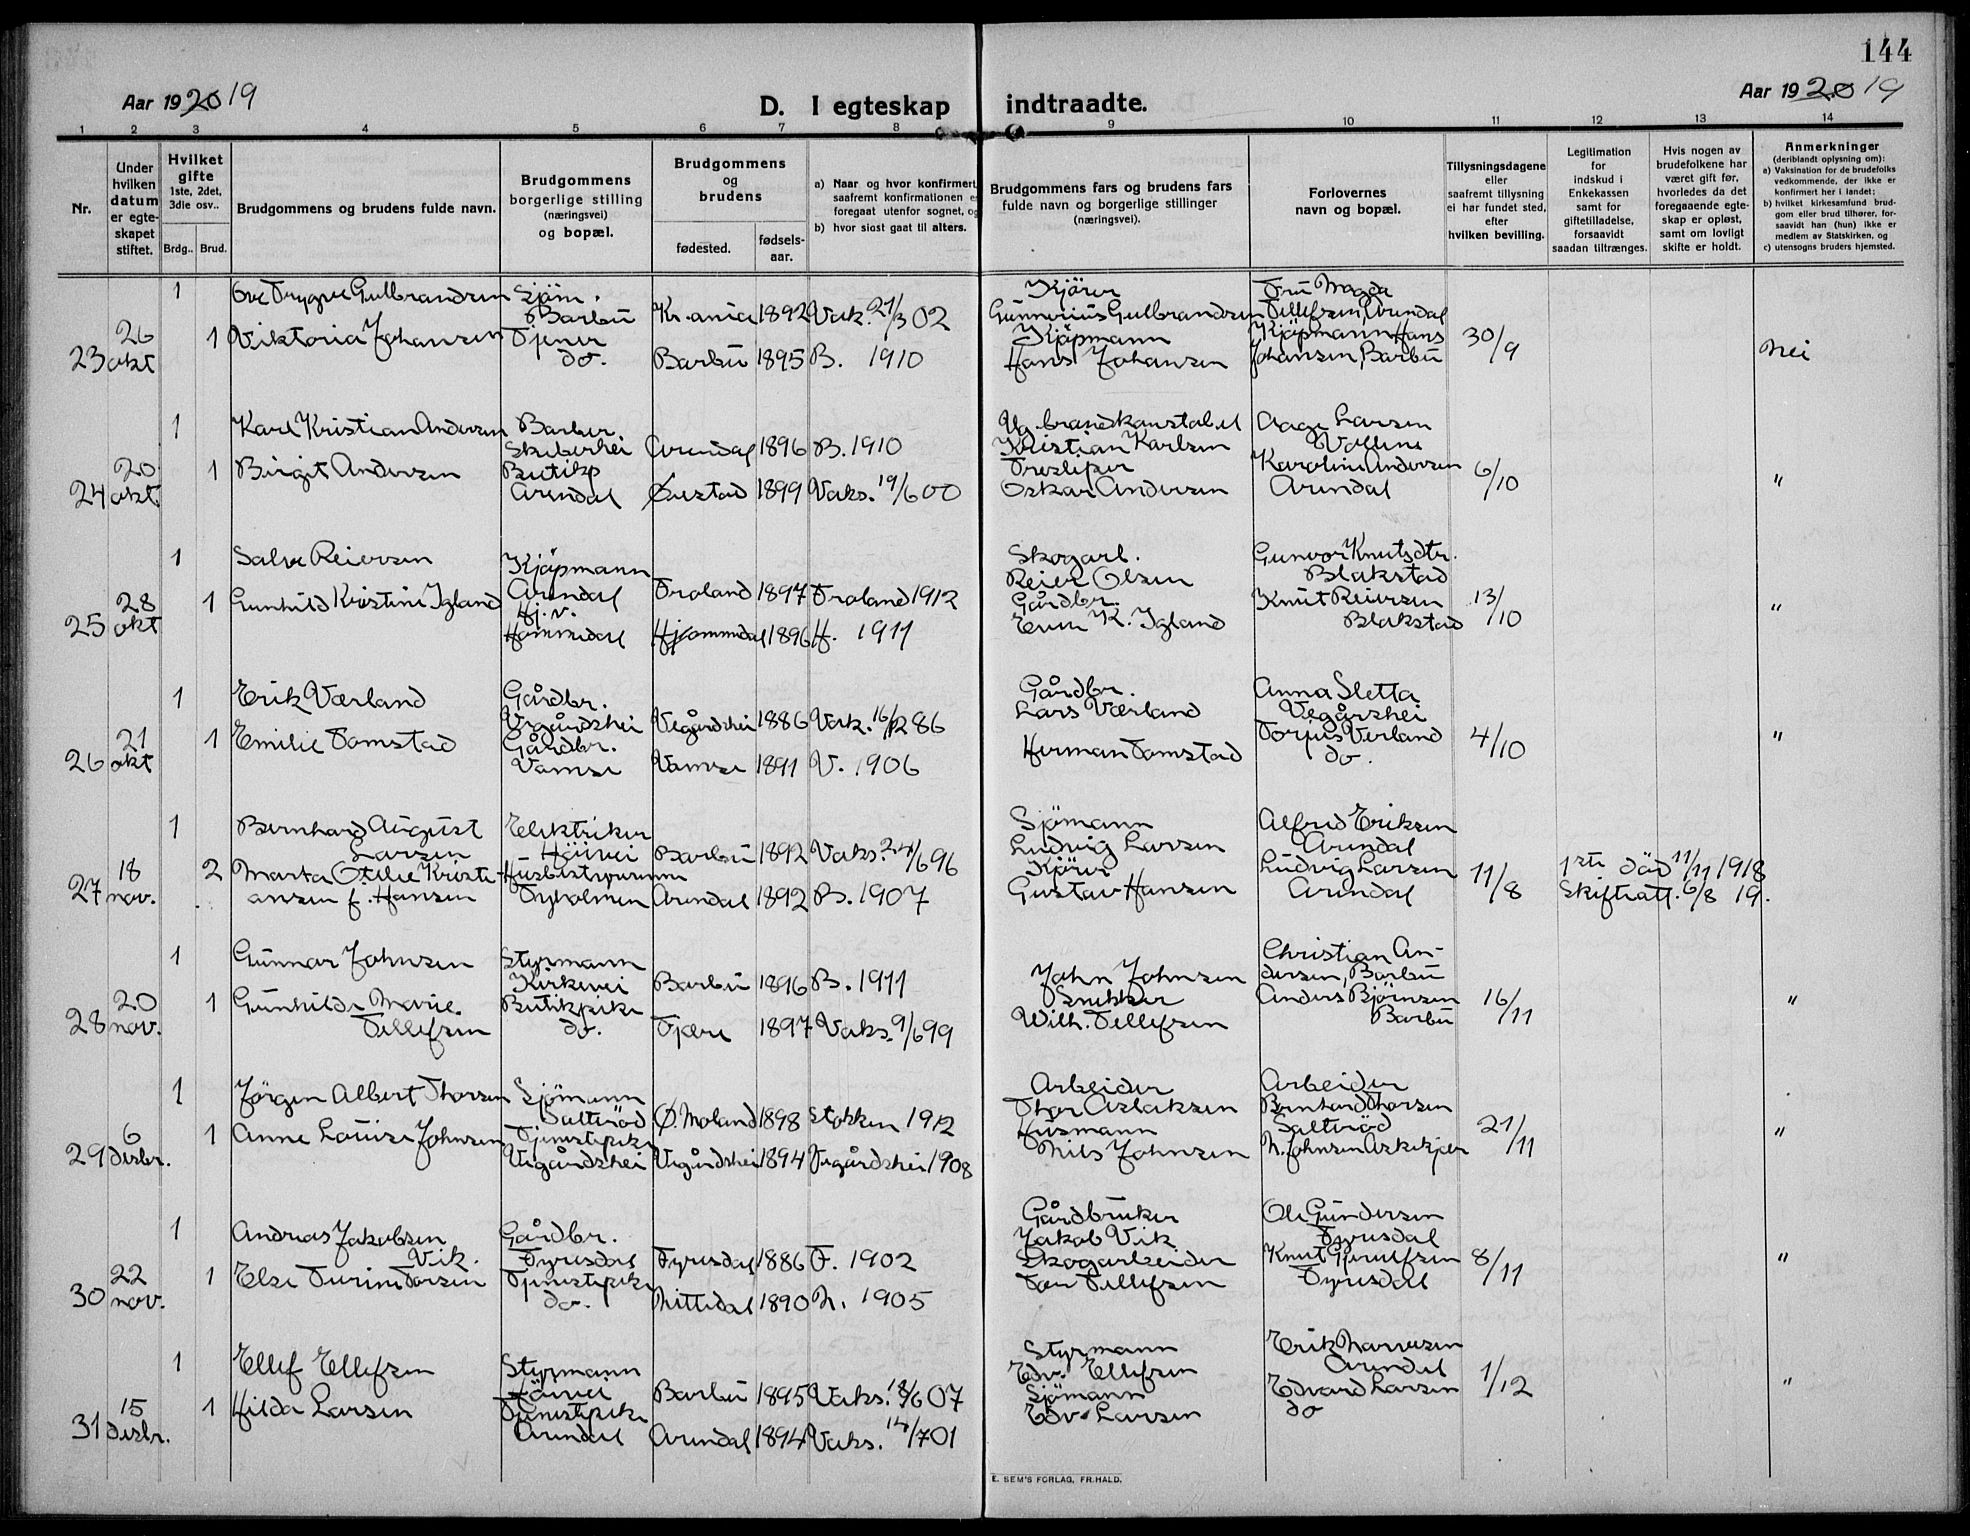 144
Aar 1920 19
D. I egteskap indtraadte.
Aar 1920 19
1 2 3 4 5 6 7 8 9 10 11 12 13 14
Nr.
Under hvilken datum er egteskapet stiftet.
Hvilket gifte 1ste, 2det, 3die osv..
Brdg.. Brud.
Brudgommens og brudens fulde navn.
Brudgommens borgerlige stilling (næringsvei) og bopæl.
Brudgommens og brudens
fødested. fødsels-aar.
a) Naar og hvor konfirmert, saafremt konfirmationen er foregaat utenfor sognet, og
b) hvor sidst gaat til alters.
Brudgommens fars og brudens fars fulde navn og borgerlige stillinger (næringsvei).
Forlovernes navn og bopæl.
Tillysningsdagene eller saafremt tillysning ei har fundet sted, efter hvilken bevilling.
Legitimation for indskud i Enkekassen samt for giftetilladelse, forsaavidt saadan tiltrænges.
Hvis nogen av brudefolkene har været gift før, hvorledes da det foregaaende egteskap er opløst, samt om lovligt skifte er holdt.
Anmerkninger (deriblandt oplysning om):
a) Vaksination for de brudefolks vedkommende, der ikke er konfirmert her i landet;
b) hvilket kirkesamfund brudgom eller brud tilhører, forsaavidt han (hun) ikke er medlem av Statskirken, og
c) utensogns bruders hjemsted.
23 26 okt 1 Ove Trygve Gulbrandsen Sjöm. Barbu Kr.ania 1892 Vak. 21/3 02 Kjörer Gunnerius Gulbrandsen Fru Magda Tellefsen, Arendal 30/9 Nei
1 Viktoria Johansen Tjener do. Barbu 1895 B. 1910 Kjöpmann Hans Johansen Kjöpmann Hans Johansen, Barbu
24 20 okt. 1 Karl Kristian Andersen Barber Arendal 1896 B. 1910 Ug. brandkonstabel Kristian Karlsen Aage Larsen 6/10 "
1 Birgit Andersen Butikp Arendal Øiestad 1899 Vaks. 19/6 00 Oskar Andersen Karoline Andersen Arendal
25 28 okt 1 Salve Reiersen Kjöpmann Arendal Froland 1897 Froland 1912 Skogarb. Reier Olsen Gunvor Knutsdtr. Blakstad 13/10 "
1 Gunhild Kristine Igland Hj.v. 1896 H. 1911 Gårdbr. Even K. Igland Knut Reiersen Blakstad
26 21 okt 1 Erik Værland Gårdbr. Vegårdshei Vegårdshei 1886 Vak. 16/12 86 Gårdbr. Lars Værland Anna Sletta Vegårshei 4/10 "
1 Emilie Tomstad Gårdbr. Vamse Vamse 1891 V. 1906 Herman Tomstad Torjus Verland do.
27 18 nov. 1 Bernhard August Larsen Elektriker Höivei Barbu 1892 Vaks. 24/6 96 Sjömann Ludvig Larsen Alfred Eriksen Arendal 11/8 1ste död 11/11 1918
2 Marta Otilie Kristiansen f. Hansen Husbestyrerinne Tyholmen Arendal 1892 B. 1907 Kjörer Gustav Hansen Ludvig Larsen Arendal Skifteatt. 6/8 19.
28 20 nov. 1 Gunnar Johnsen Styrmann Kirkevei Barbu 1896 B. 1911 John Johnsen Christian Andersen, Barbu 16/11 "
1 Gunhilde Marie Tellefsen Butikpike do. 1897 Vaks. 9/6 99 Snekker Wilh. Tellefsen Anders Björnsen Barbu
29 6 desbr. 1 Jörgen Albert Thorsen Sjömann Saltröd Ø. Moland 1898 Stokken 1912 Arbeider Thor Aslaksen Arbeider Bernhard Thorsen Saltröd 21/11 "
1 Anne Louise Johnsen Tjenestepike Vegårdshei Vegårdshei 1894 Vegårdshei 1908 Husmann Nils Johnsen N. Johnsen
30 22 nov. 1 Andreas Jakobsen Vik. Gårdbr. Fyresdal Fyresdal 1886 F. 1902 Gårdbruker Jakob Vik Ole Gundersen Fyresdal 8/11 "
1 Else Turine Torsen Tjenestepike do. Nissedal 1890 N. 1905 Skogarbeider Tor Tellefsen Knut Fyresdal
31 15 desbr. 1 Ellef Ellefsen Styrmann Höivei Barbu 1895 Vaks. 18/6 07 Styrmann Edv. Ellefsen Erik Arendal 1/12 "
1 Hilda Larsen Tjenestepike Arendal Arendal 1894 Vaks. 14/7 01 Sjömann Edv. Larsen Edvard Larsen do
E. SEM'S FORLAG, FR.HALD.